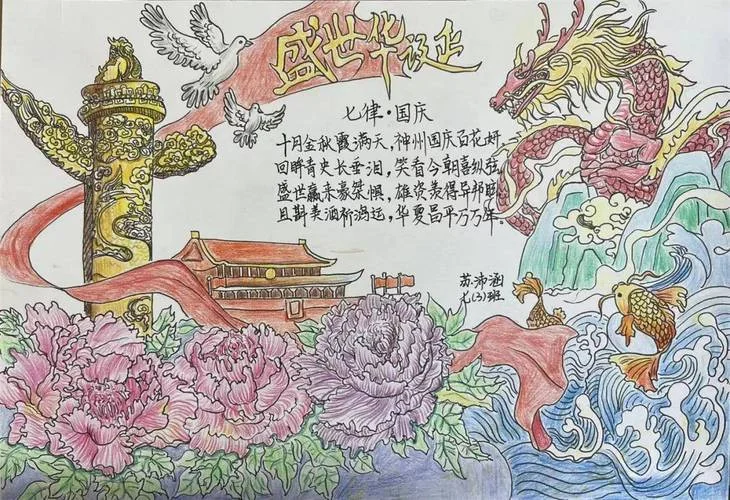 盛世华诞
七律·国庆
十月金秋霞满天,神州国庆百花妍
回眸青史长垂泪,笑看今朝喜纵弦
盛世赢来豪桀惧,雄姿羡得异邦
且斟美酒祈鸿运,华夏昌平万万年。
苏沛涵
七(3)班